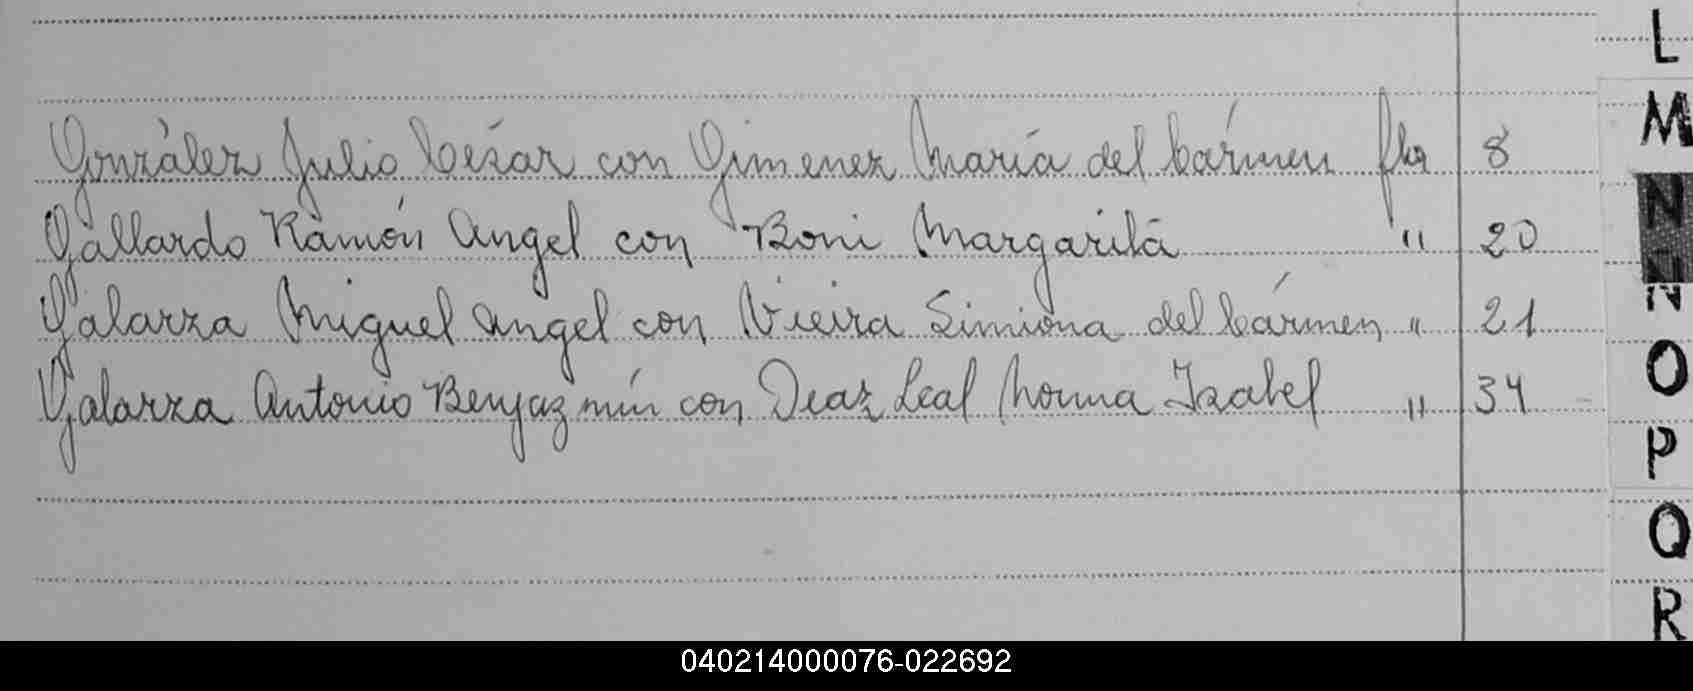 González Julio César con Gimenez María del Cármen fha 8
Gallardo Ramón Angel con Boni Margarita " 20
Galarza Miguel Angel con Vieira Simiona del Cármen " 21
Galarza Antonio Benjazmín con Deaz Leal Norma Izabel " 34
L
M
N
N
O
P
Q
R
040214000076-022692